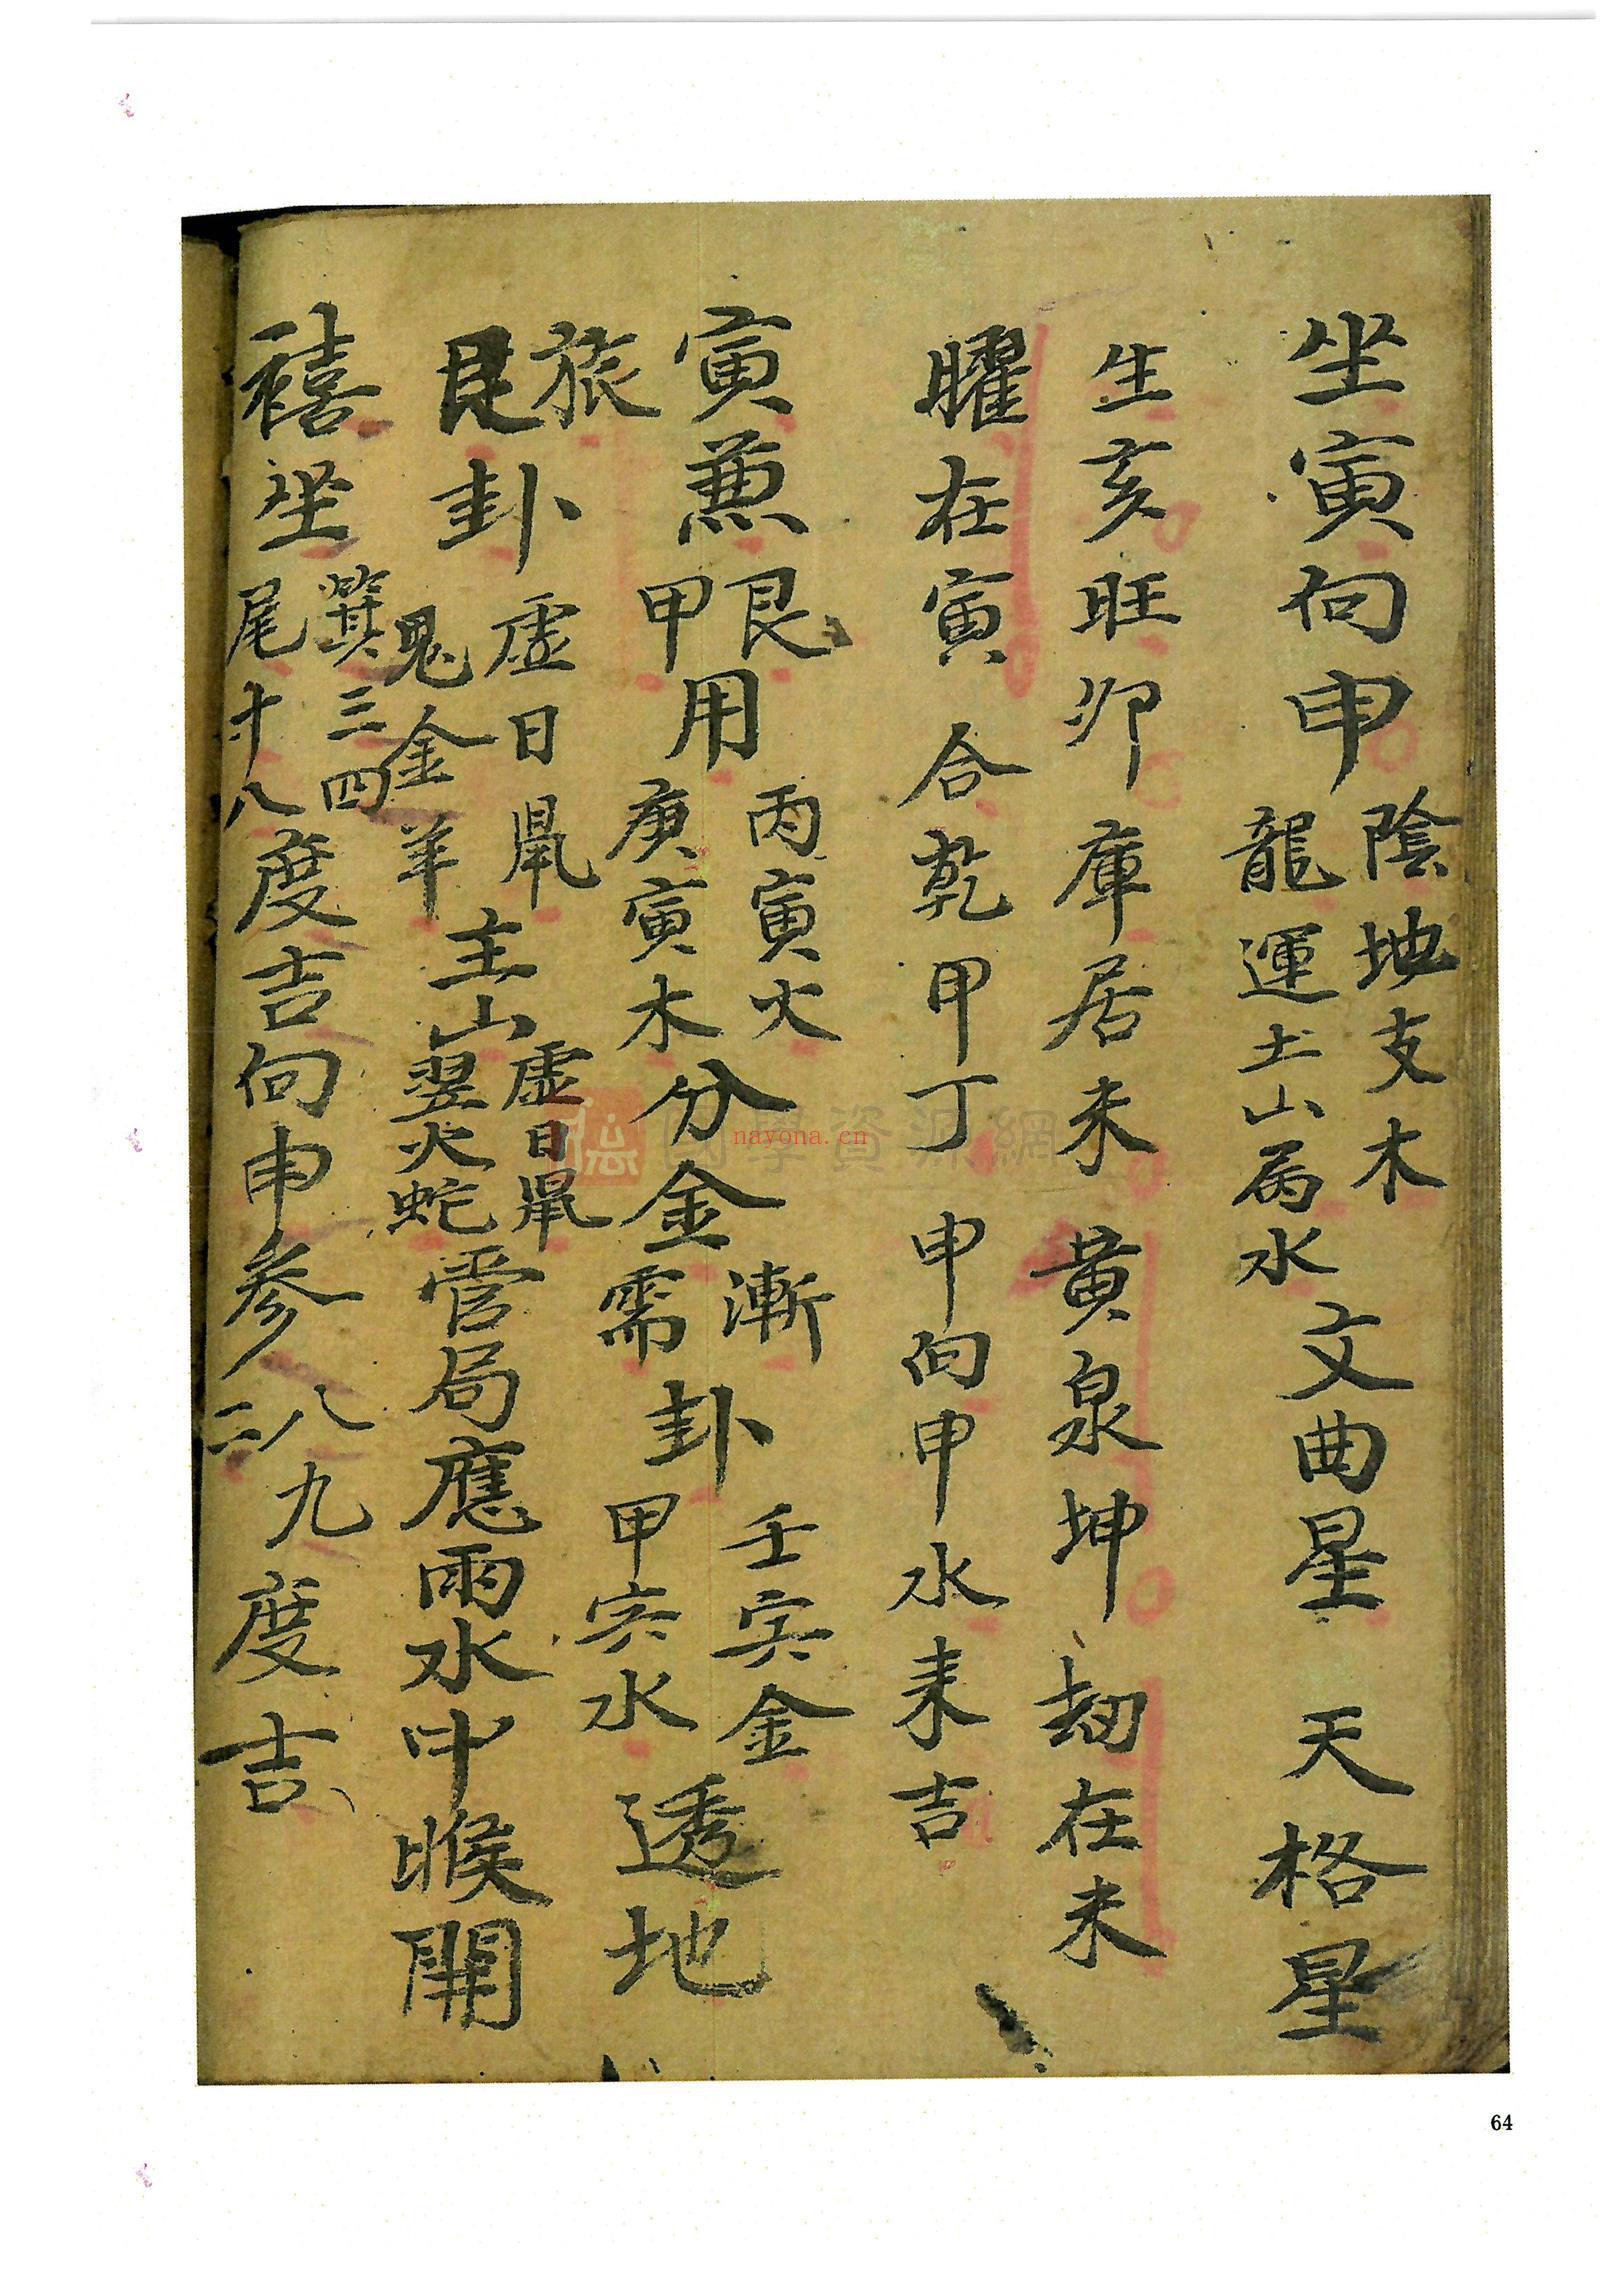 坐寅向申 陰地支木 龍運土山屬水 文曲星 天格星
生亥旺卯庫居未 黄泉坤 劫在未
曜在寅 合乾甲丁 申向甲水耒吉
寅兼艮甲用丙寅火庚寅木分金漸需卦壬寅金甲寅水透地
旅艮卦虛日鼠鬼金羊主山虛日鼠翌火蛇管局應雨水中候開
禧坐箕三四尾十八度吉向申参八九二度吉
國學資源網
nayona.cn
64